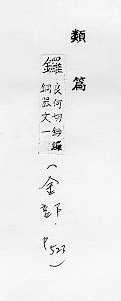 類篇
鑼
良何切鈔鑼
銅器文一
(金部下. P523)